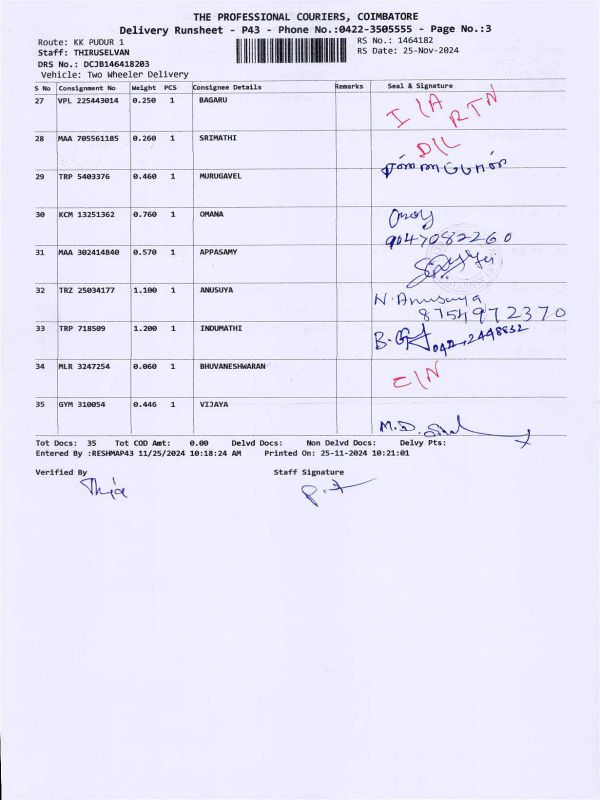 THE PROFESSIONAL COURIERS, COIMBATORE
Delivery Runsheet - P43 - Phone No.:0422-3505555 - Page No.:3
Route: KK PUDUR 1 RS No.: 1464182
Staff: THIRUSELVAN RS Date: 25-Nov-2024
DRS No.: DCJB146418203
Vehicle: Two Wheeler Delivery
S No Consignment No Weight PCS Consignee Details Remarks Seal & Signature
27 VPL 225443014 0.250 1 BAGARU I/A RTN
28 MAA 705561185 0.260 1 SRIMATHI D/L
29 TRP 5403376 0.460 1 MURUGAVEL
30 KCM 13251362 0.760 1 OMANA
9047082260
31 MAA 302414840 0.570 1 APPASAMY
32 TRZ 25034177 1.100 1 ANUSUYA N. Anusuya
8754972370
33 TRP 718509 1.200 1 INDUMATHI
34 MLR 3247254 0.060 1 BHUVANESHWARAN C/N
35 GYM 310054 0.446 1 VIJAYA M.D.
Tot Docs: 35 Tot COD Amt: 0.00 Delvd Docs: Non Delvd Docs: Delvy Pts:
Entered By :RESHMAP43 11/25/2024 10:18:24 AM Printed On: 25-11-2024 10:21:01
Verified By Staff Signature